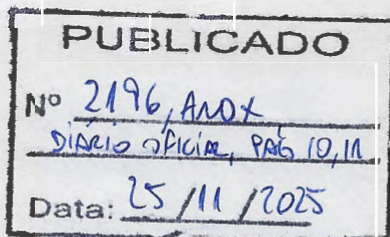 PUBLICADO
Nº 2196, ANO X
DIÁRIO OFICIAL, PAG 10, 11
Data: 25 / 11 / 2025